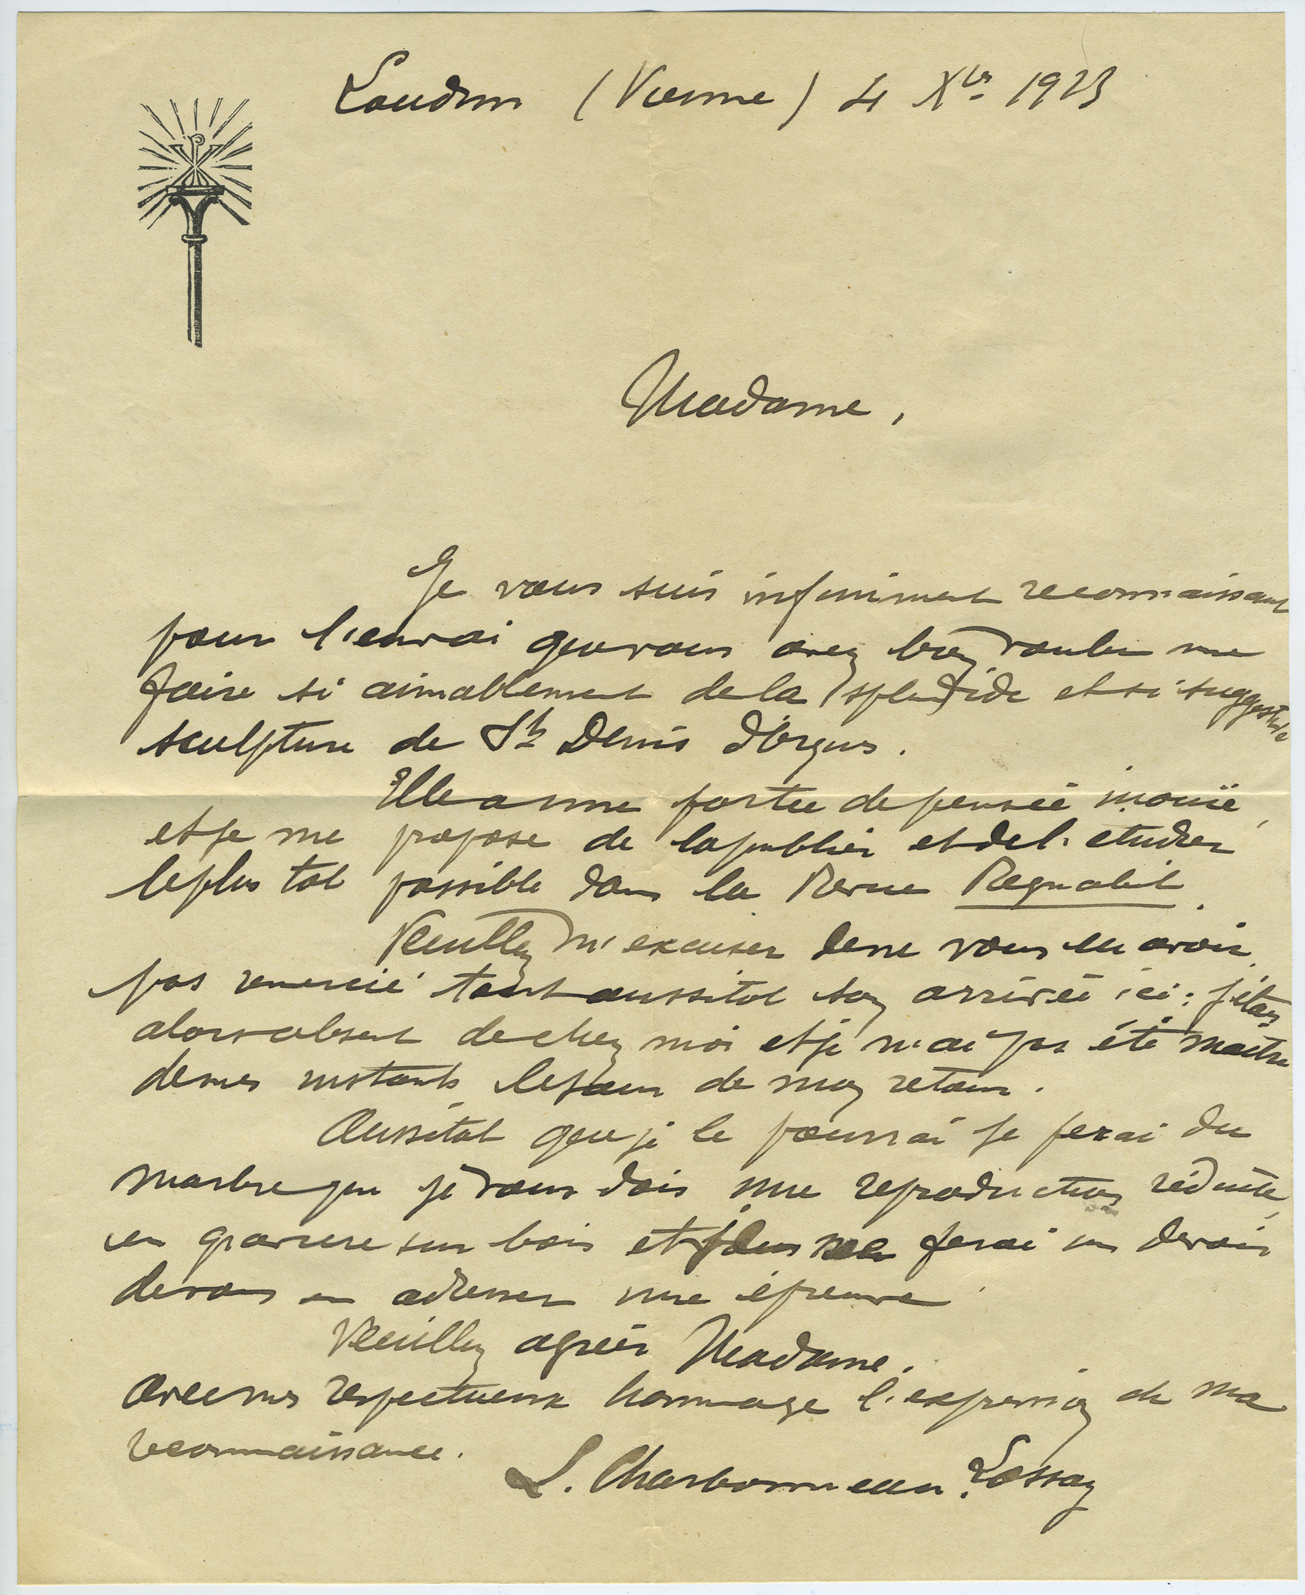 Loudun (Vienne) 4 Xbre 1923
Madame,
Je vous suis infiniment reconnaissant
pour l'envoi que vous avez bien voulu me
faire si aimablement de la splendide et si suggestive
sculpture de St Denis d'Orques.
Elle a une portée de pensée inouïe,
et je me propose de la publier et de l'etudier
le plus tot possible dans la Revue Regnabit.
Veuillez m'excuser de ne vous en avoir
pas remercié tout aussitot son arrivée ici : j'étais
alors absent de chez moi et je n'ai pas été maitre
de mes instants le jour de mon retour.
Aussitot que je le pourrai je ferai du
marbre que je vous dois une reproduction réduite,
en gravure sur bois et me ferai un devoir
de vous en adresser une épreuve.
Veuillez agréer Madame.
avec mes respectueux hommage l'expression de ma
reconnaissance.
L. Charbonneau-Lassay